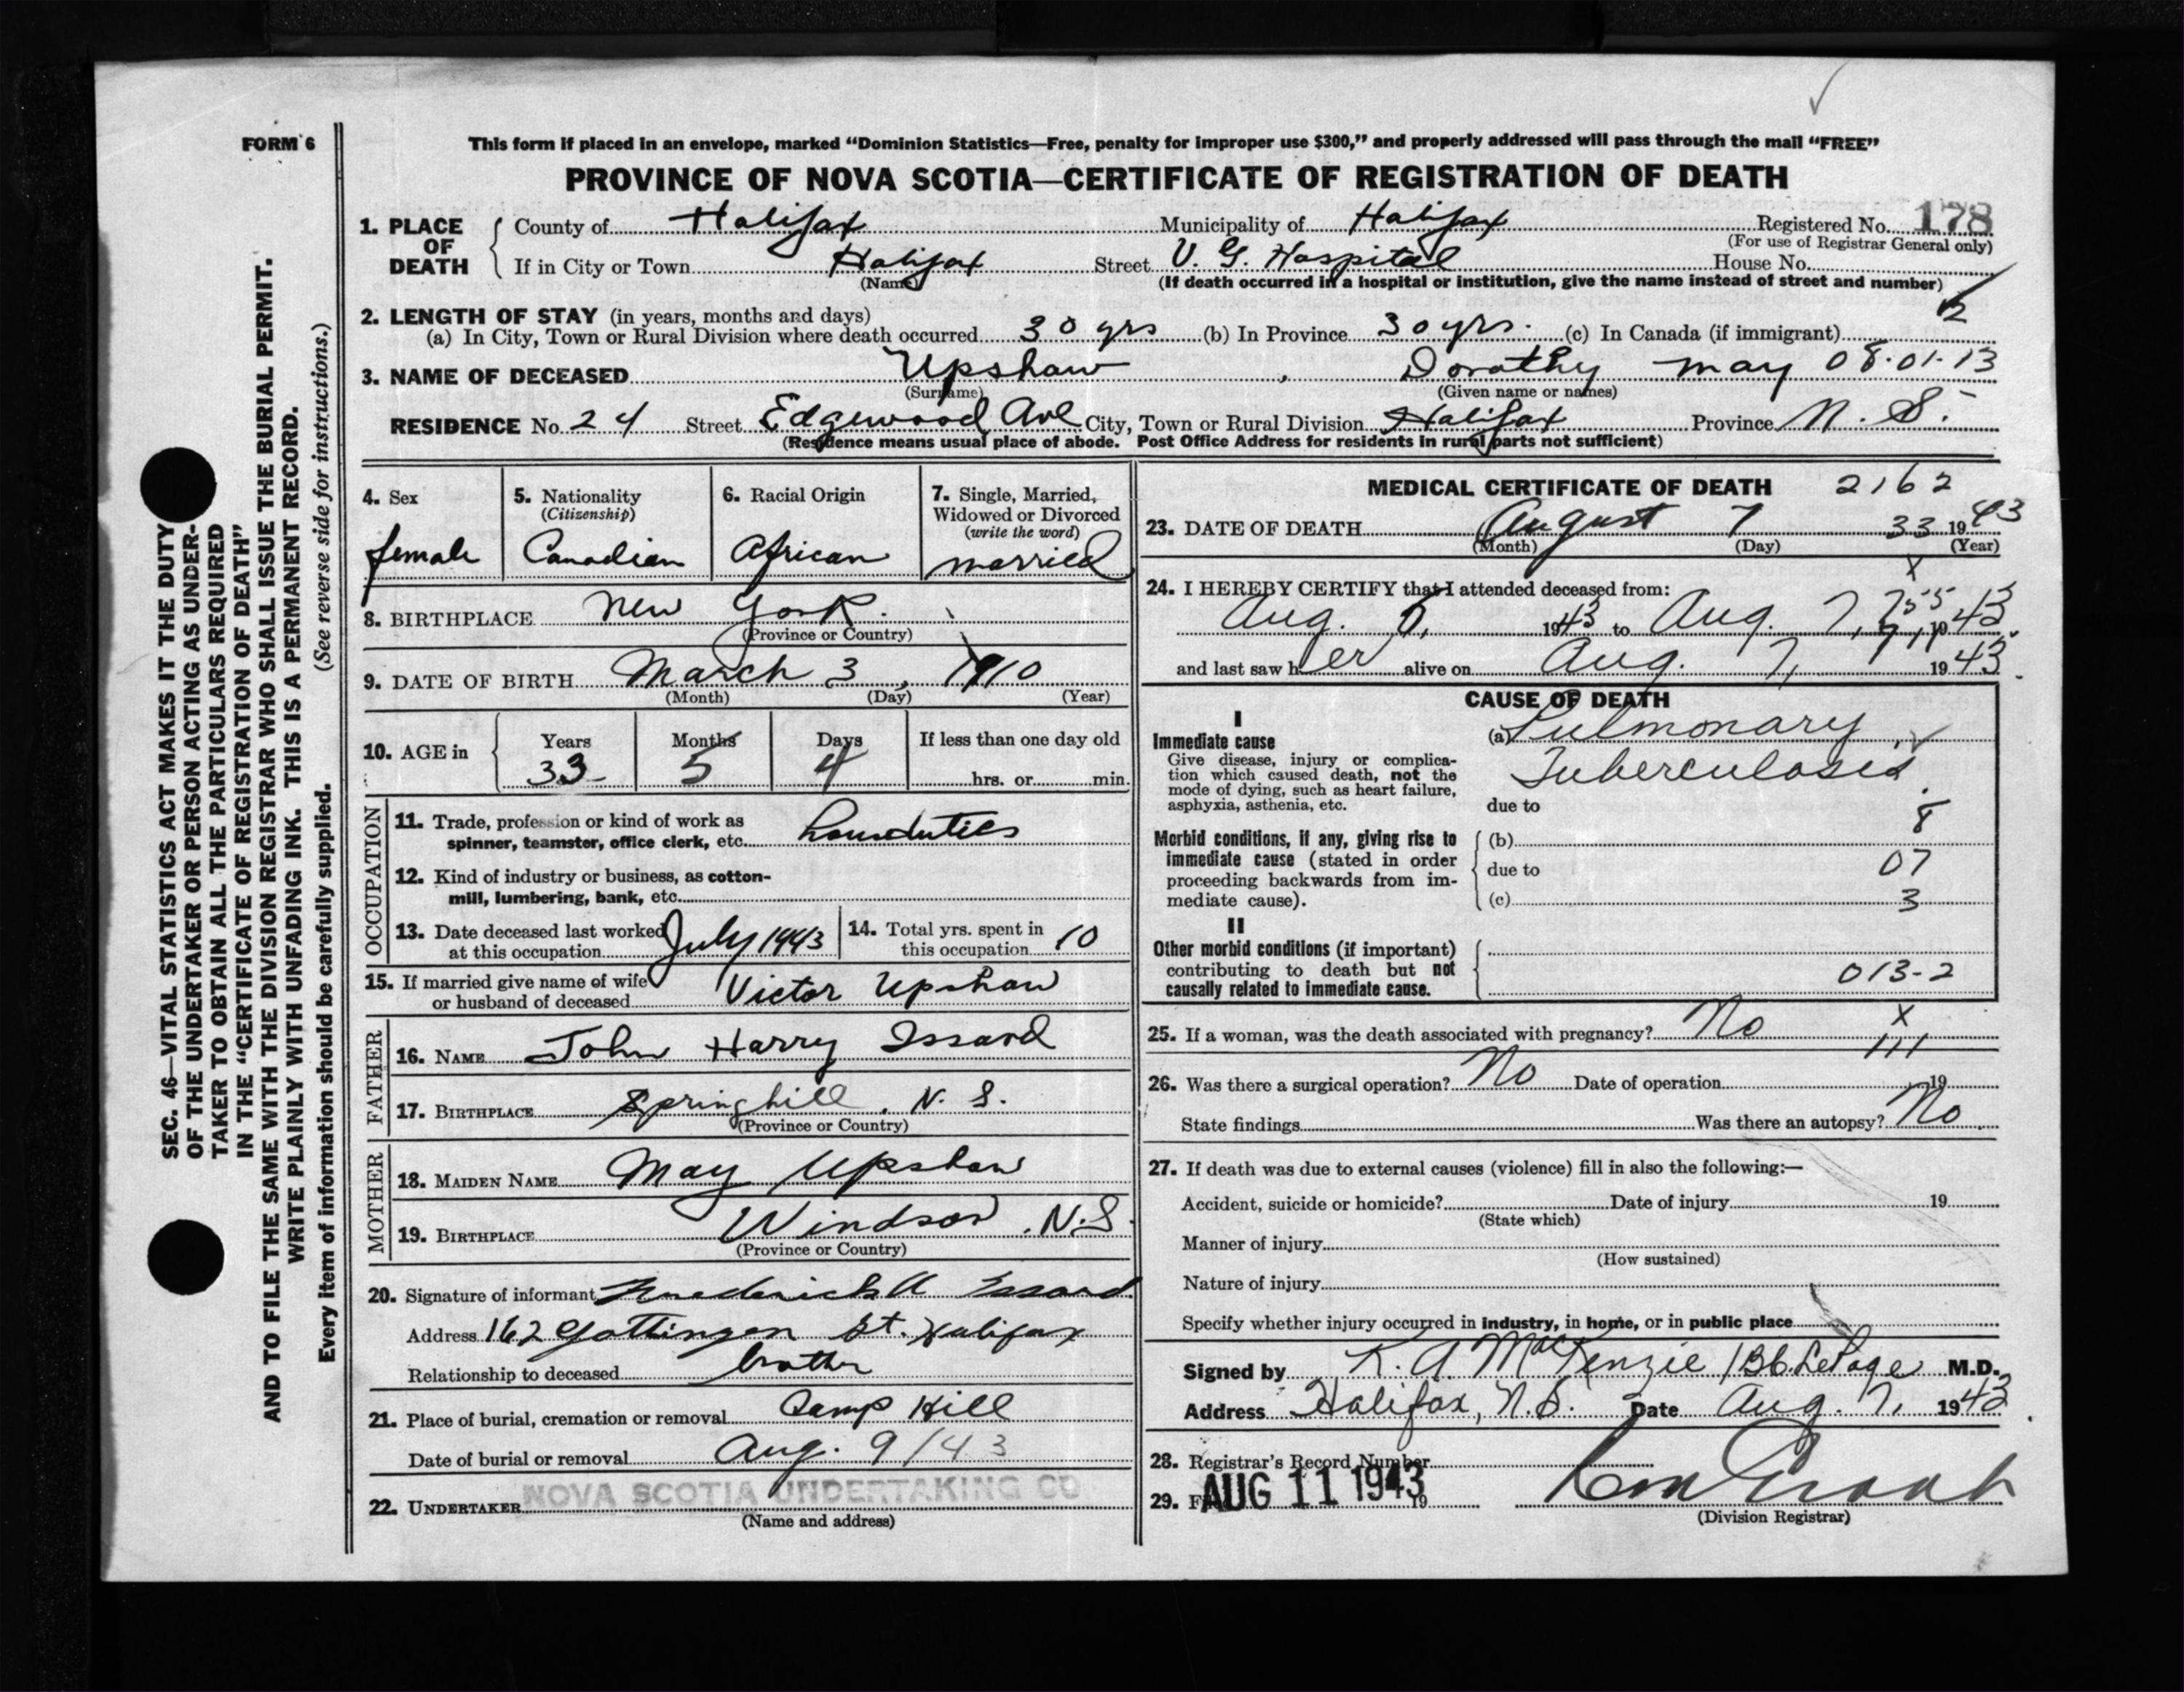 FORM 6
This form if placed in an envelope, marked "Dominion Statistics—Free, penalty for improper use $300," and properly addressed will pass through the mail "FREE"
PROVINCE OF NOVA SCOTIA—CERTIFICATE OF REGISTRATION OF DEATH
1. PLACE OF DEATH County of Halifax Municipality of Halifax Registered No. 178
(For use of Registrar General only)
If in City or Town Halifax Street V. G. Hospital House No.
(Name) (If death occurred in a hospital or institution, give the name instead of street and number)
2
2. LENGTH OF STAY (in years, months and days)
(a) In City, Town or Rural Division where death occurred 30 yrs (b) In Province 30 yrs. (c) In Canada (if immigrant)
3. NAME OF DECEASED Upshaw, Dorothy may 08-01-13
(Surname) (Given name or names)
RESIDENCE No. 24 Street Edgewood Ave City, Town or Rural Division Halifax Province N. S.
(Residence means usual place of abode. Post Office Address for residents in rural parts not sufficient)
4. Sex
female
5. Nationality
(Citizenship)
Canadian
6. Racial Origin
African
7. Single, Married, Widowed or Divorced
(write the word)
married
8. BIRTHPLACE New York.
(Province or Country)
9. DATE OF BIRTH March 3, 1910
(Month) (Day) (Year)
10. AGE in Years Months Days If less than one day old
33 5 4 hrs. or min.
OCCUPATION
11. Trade, profession or kind of work as
spinner, teamster, office clerk, etc. houseduties
12. Kind of industry or business, as cotton-
mill, lumbering, bank, etc.
13. Date deceased last worked
at this occupation July 1943
14. Total yrs. spent in
this occupation 10
15. If married give name of wife
or husband of deceased Victor Upshaw
FATHER
16. NAME John Harry Issard
17. BIRTHPLACE Springhill, N. S.
(Province or Country)
MOTHER
18. MAIDEN NAME May Upshaw
19. BIRTHPLACE Windsor, N.S
(Province or Country)
20. Signature of informant Frederick A Issard
Address 162 Gottingen St. Halifax
Relationship to deceased brother
21. Place of burial, cremation or removal Camp Hill
Date of burial or removal Aug. 9/43
22. UNDERTAKER NOVA SCOTIA UNDERTAKING CO
(Name and address)
MEDICAL CERTIFICATE OF DEATH 2162
23. DATE OF DEATH August 7 33 1943
(Month) (Day) (Year)
x
24. I HEREBY CERTIFY that I attended deceased from:
Aug. 6, 1943 to Aug. 7, 1943
and last saw her alive on Aug. 7, 1943
CAUSE OF DEATH
I
Immediate cause
Give disease, injury or complica-
tion which caused death, not the
mode of dying, such as heart failure,
asphyxia, asthenia, etc.
(a) Pulmonary
Tuberculosis
due to
8
Morbid conditions, if any, giving rise to
immediate cause (stated in order
proceeding backwards from im-
mediate cause).
(b)
due to 07
(c) 3
II
Other morbid conditions (if important)
contributing to death but not
causally related to immediate cause.
013-2
x
25. If a woman, was the death associated with pregnancy? No
111
26. Was there a surgical operation? No Date of operation 19
State findings Was there an autopsy? No
27. If death was due to external causes (violence) fill in also the following:—
Accident, suicide or homicide? Date of injury 19
(State which)
Manner of injury
(How sustained)
Nature of injury
Specify whether injury occurred in industry, in home, or in public place
Signed by K. A. MacKenzie / B.C. LePage M.D.
Address Halifax, N.S. Date Aug. 7, 1943
28. Registrar's Record Number
29. AUG 11 1943 19
(Division Registrar)
SEC. 46—VITAL STATISTICS ACT MAKES IT THE DUTY
OF THE UNDERTAKER OR PERSON ACTING AS UNDER-
TAKER TO OBTAIN ALL THE PARTICULARS REQUIRED
IN THE "CERTIFICATE OF REGISTRATION OF DEATH"
AND TO FILE THE SAME WITH THE DIVISION REGISTRAR WHO SHALL ISSUE THE BURIAL PERMIT.
WRITE PLAINLY WITH UNFADING INK. THIS IS A PERMANENT RECORD.
Every item of information should be carefully supplied. (See reverse side for instructions.)